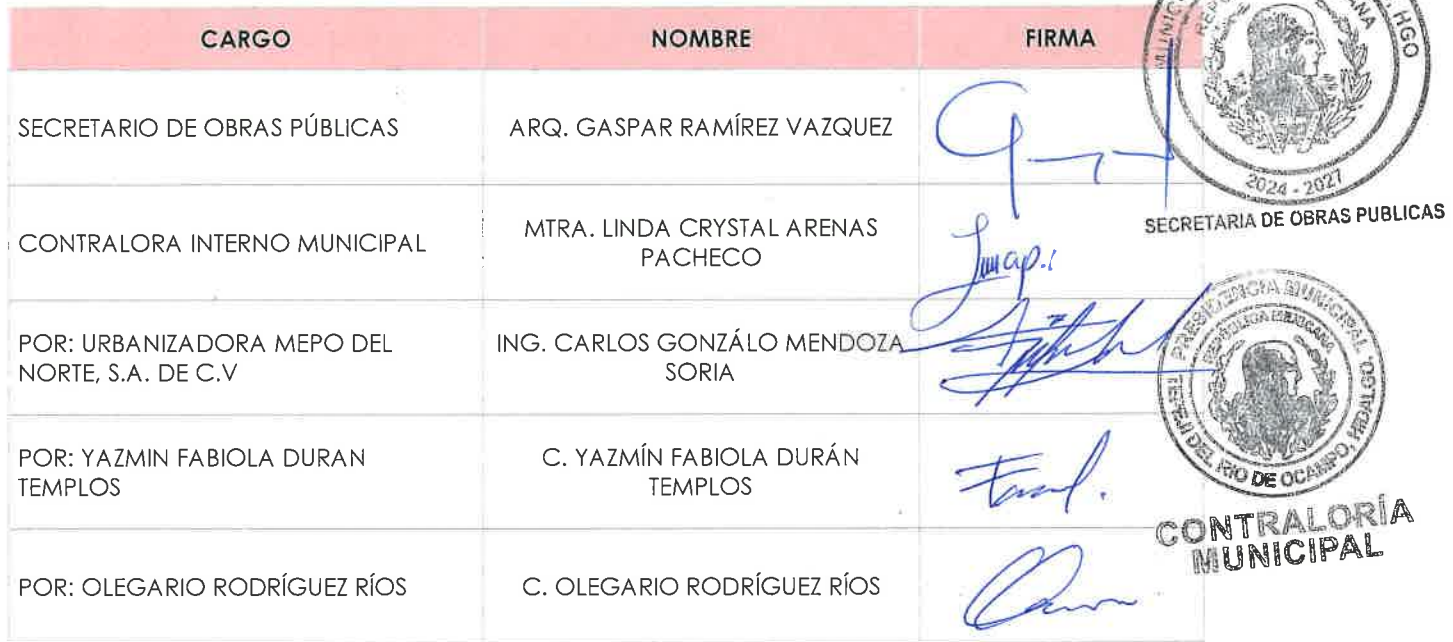 CARGO NOMBRE FIRMA
SECRETARIO DE OBRAS PÚBLICAS ARQ. GASPAR RAMÍREZ VAZQUEZ
CONTRALORA INTERNO MUNICIPAL MTRA. LINDA CRYSTAL ARENAS
PACHECO
POR: URBANIZADORA MEPO DEL ING. CARLOS GONZÁLO MENDOZA
NORTE, S.A. DE C.V SORIA
POR: YAZMIN FABIOLA DURAN C. YAZMÍN FABIOLA DURÁN
TEMPLOS TEMPLOS
POR: OLEGARIO RODRÍGUEZ RÍOS C. OLEGARIO RODRÍGUEZ RÍOS
HGO
2024 - 2027
SECRETARIA DE OBRAS PUBLICAS
PRESIDENCIA MUNICIPAL
REPÚBLICA MEXICANA
TEPEJI DEL RIO DE OCAMPO, HIDALGO
CONTRALORÍA
MUNICIPAL